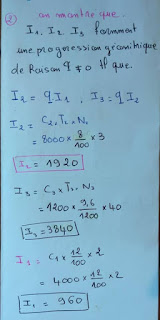 ② on montre que.
I₁, I₂, I₃ forment
une progression géométrique
de Raison q ≠ 0 tq que.
I₂ = q I₁ , I₃ = q I₂
I₂ = C₂ × T₂ × N₂
= 8000 × 8/100 × 3
I₂ = 1920
I₃ = C₃ × T₃ × N₃
= 1200 × 9,6/1200 × 40
I₃ = 3840
I₁ = C₁ × 12/100 × 2
= 4000 × 12/100 × 2
I₁ = 960